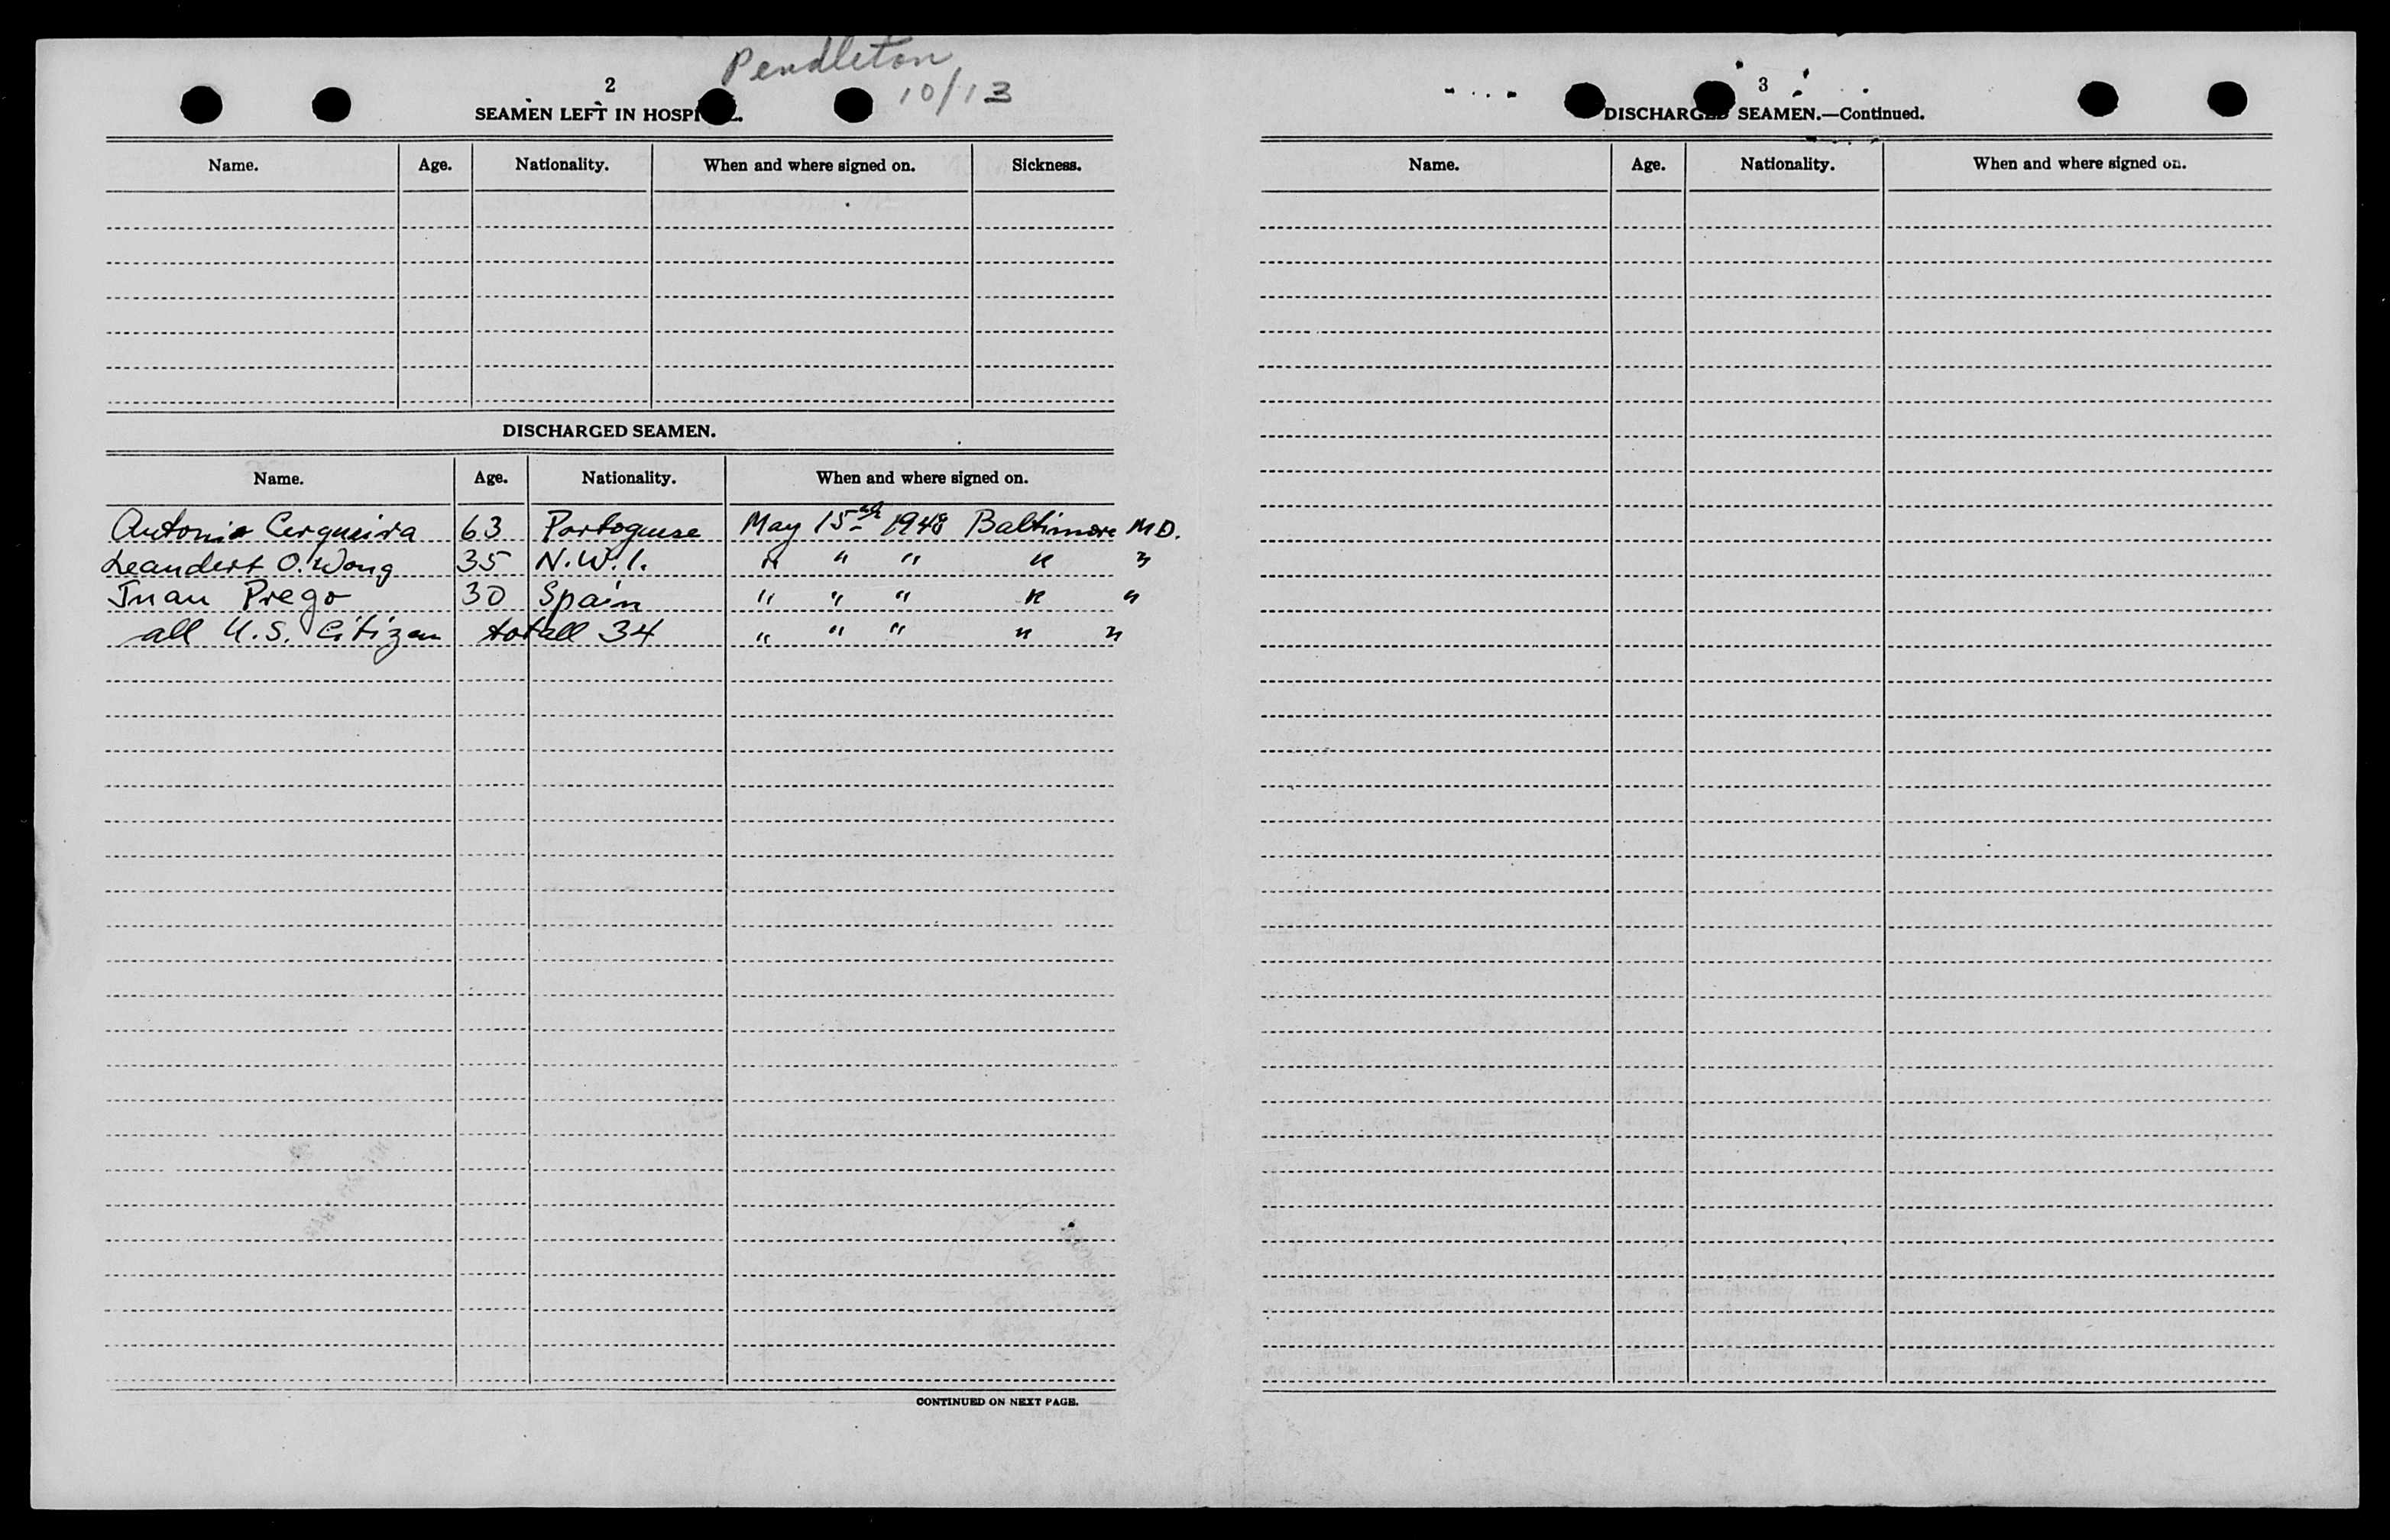 Pendleton
10/13
2
SEAMEN LEFT IN HOSPI
Name. Age. Nationality. When and where signed on. Sickness.
DISCHARGED SEAMEN.
Name. Age. Nationality. When and where signed on.
Antonio Cerqueira 63 Portoguese May 15th 1948 Baltimore MD.
Leandert O. Wong 35 N.W.I. " " " " "
Juan Prego 30 Spain " " " " "
all U.S. Citizen totall 34 " " " " "
CONTINUED ON NEXT PAGE.
3
DISCHARGED SEAMEN.—Continued.
Name. Age. Nationality. When and where signed on.